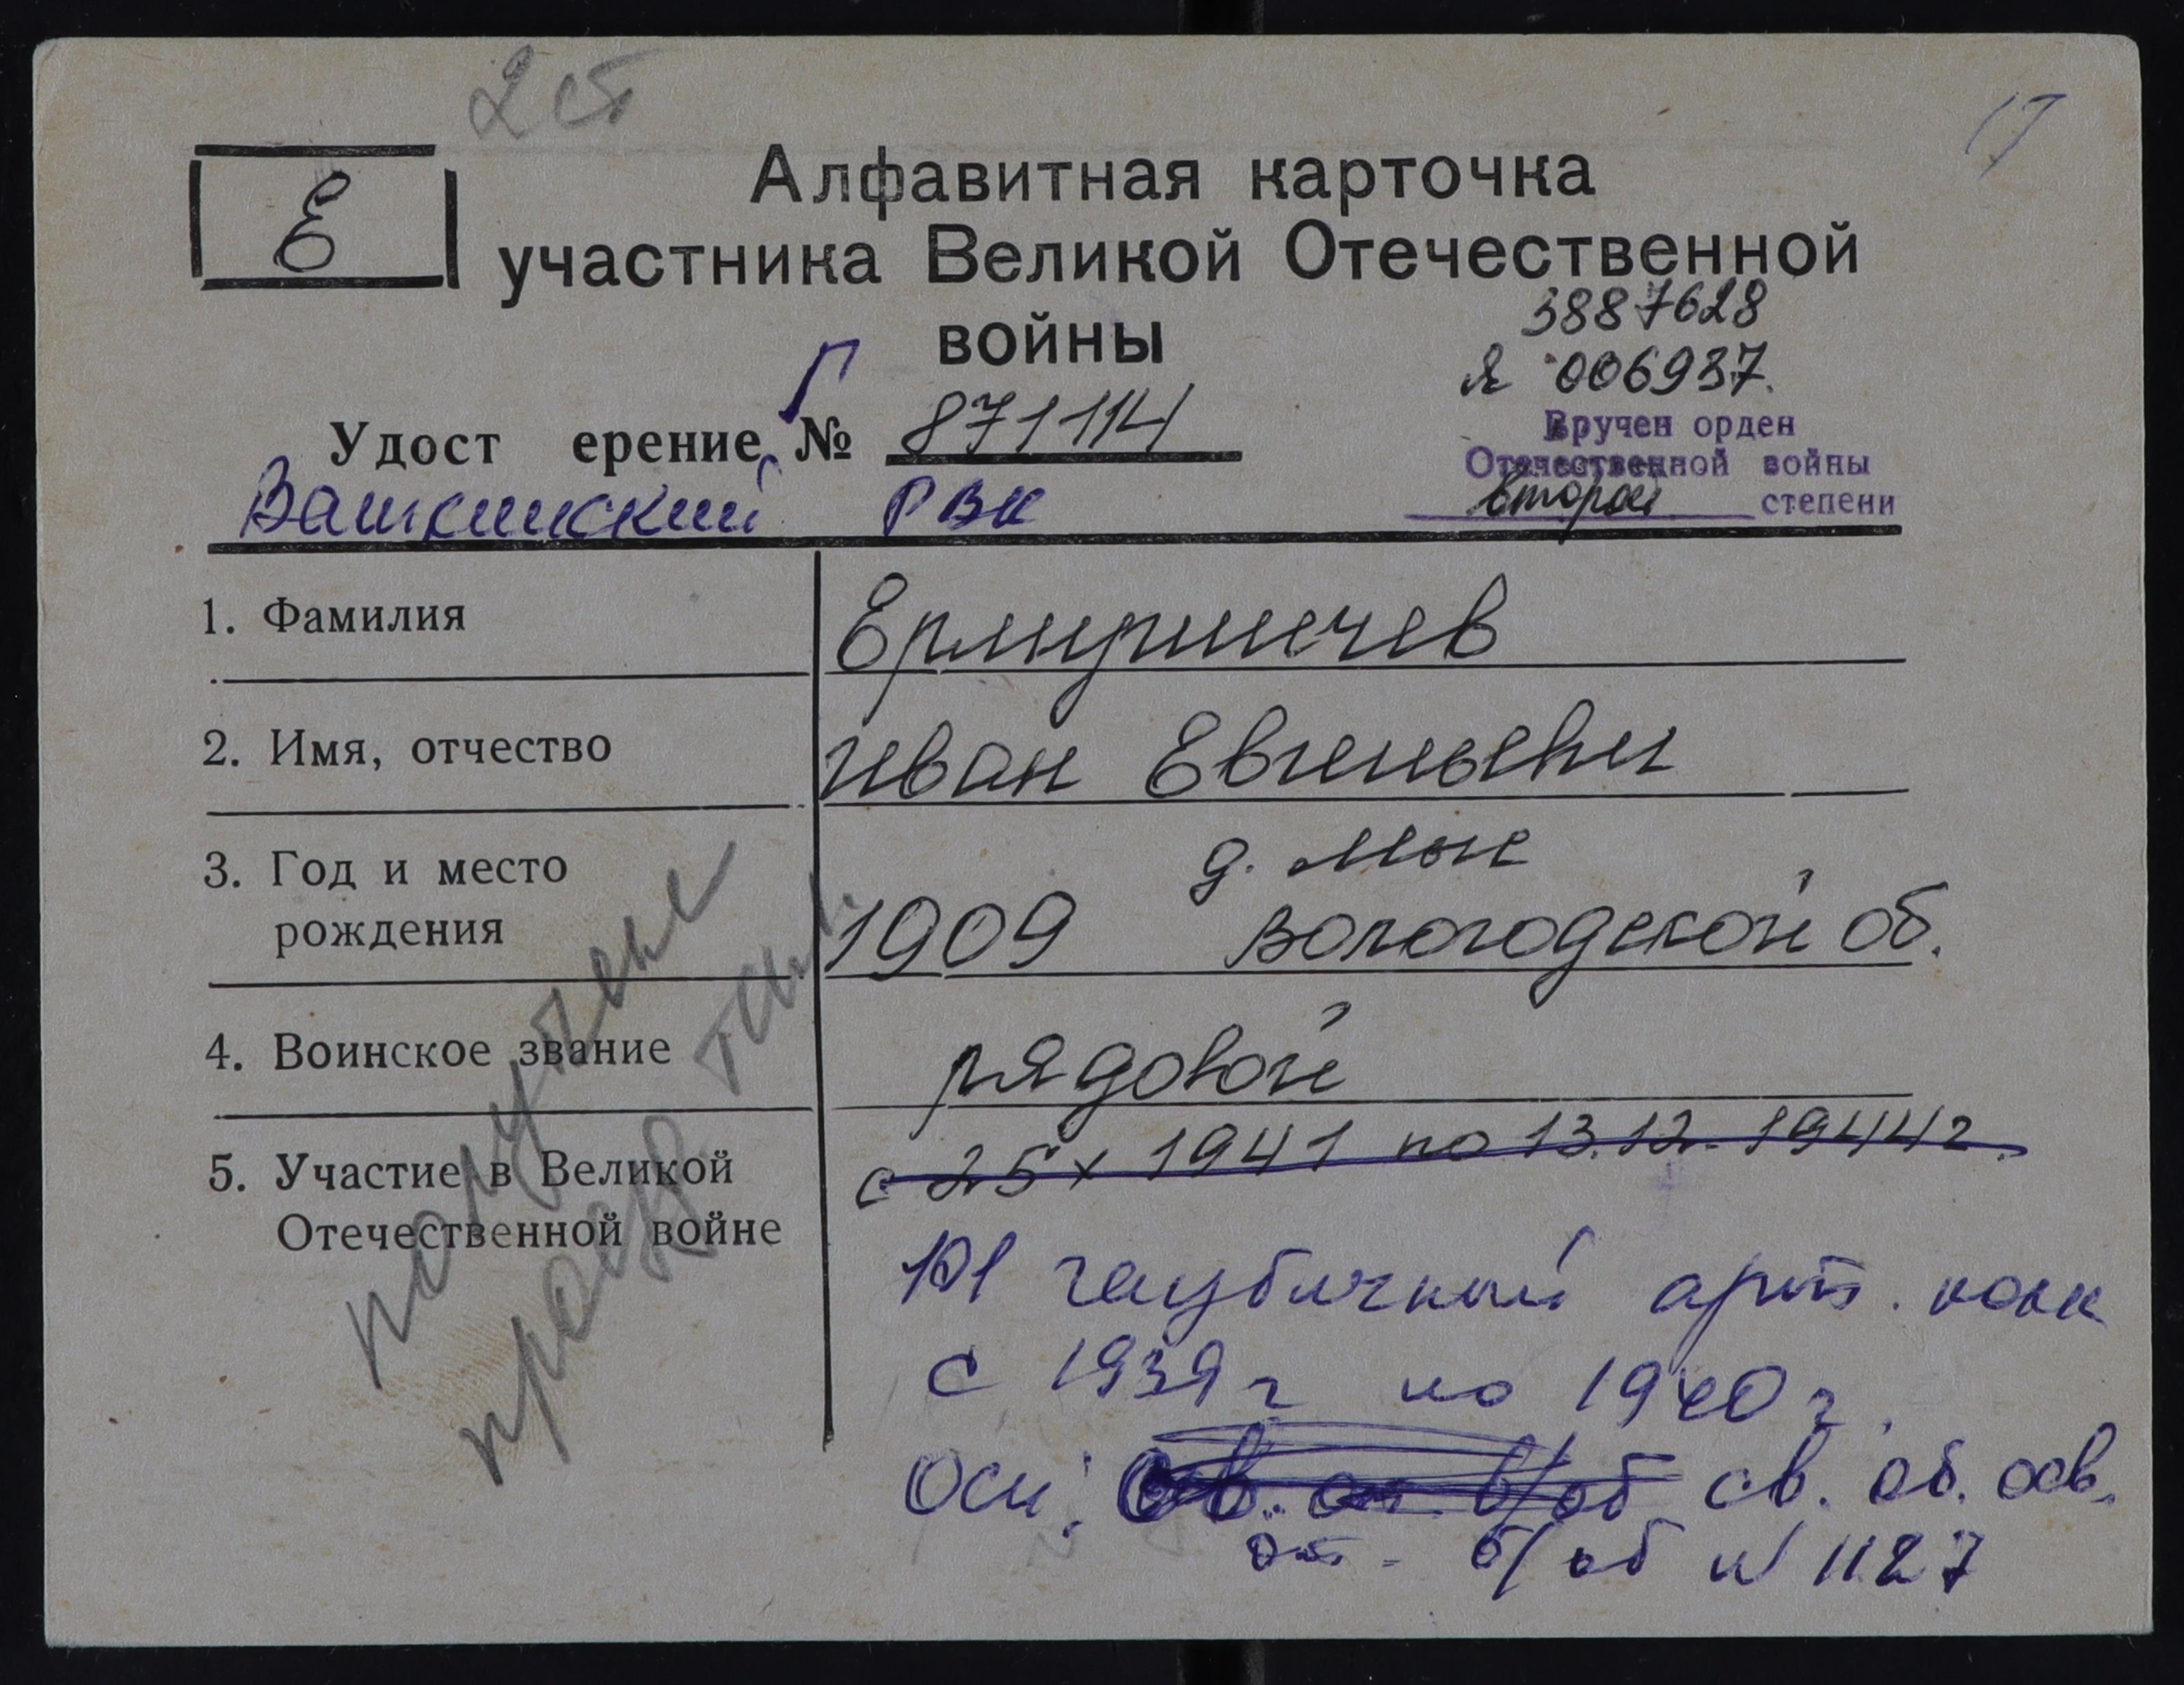 2 ст
17
Е
Алфавитная карточка
участника Великой Отечественной
войны
3887628
006937
Г
Удост ерение № 871114
Вручен орден
Отечественной войны
второй степени
Вашкинский РВК
1. Фамилия
Ермушичев
2. Имя, отчество
Иван Евгеньевич
3. Год и место
рождения
д. Мыс
1909 Вологодской об.
4. Воинское звание
рядовой
5. Участие в Великой
Отечественной войне
с 25 х 1941 по 13.12.1944 г.
101 гаубичный арт. полк
с 1939 г по 1940 г.
Осн: св. об. осв.
от б/об N 1127